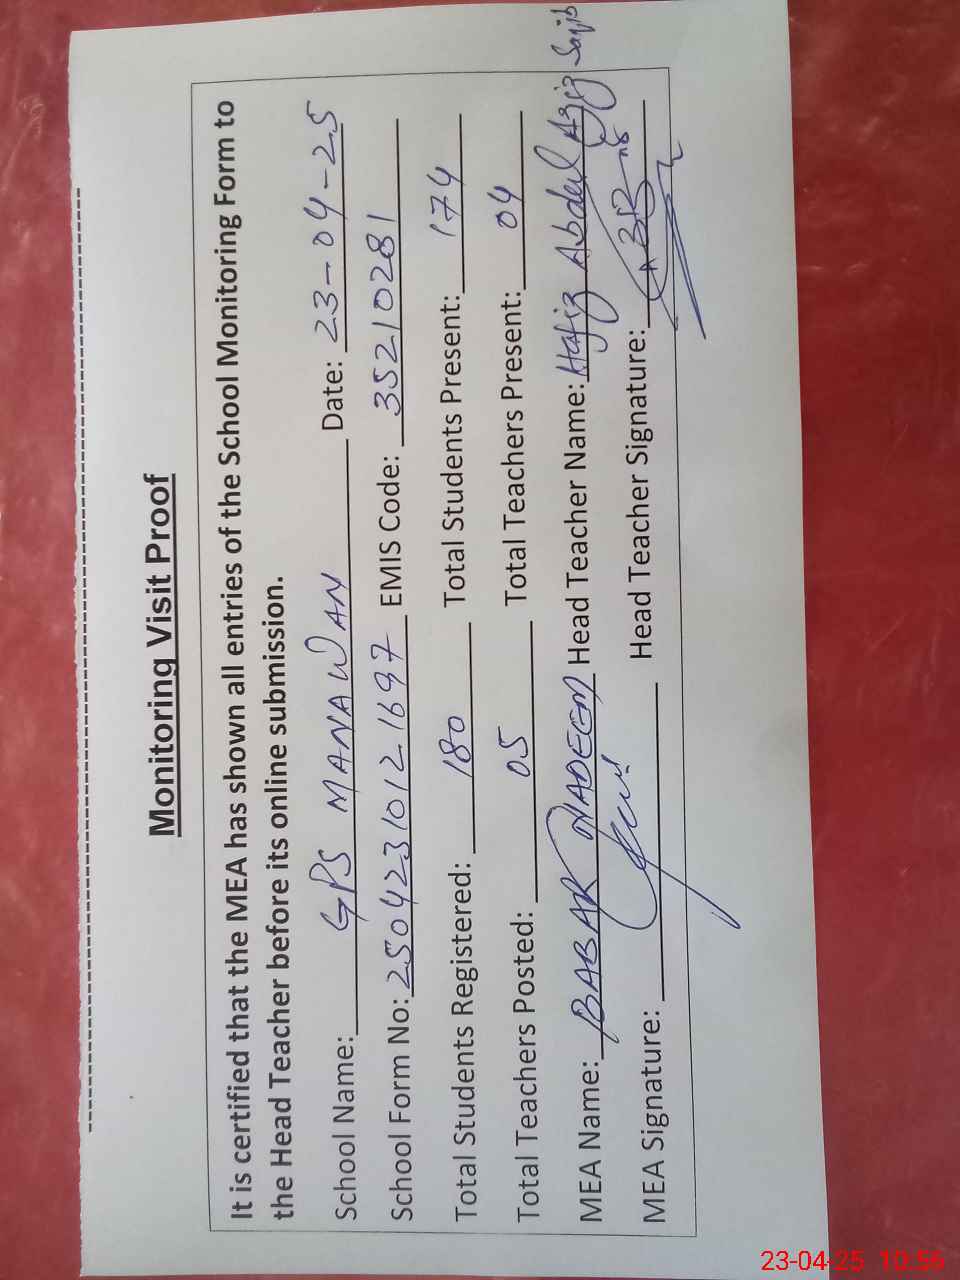 Monitoring Visit Proof
It is certified that the MEA has shown all entries of the School Monitoring Form to
the Head Teacher before its online submission.
School Name: GPS MANAWAN Date: 23-04-25
School Form No: 25042310121697 EMIS Code: 35210281
Total Students Registered: 180 Total Students Present: 174
Total Teachers Posted: 05 Total Teachers Present: 04
MEA Name: BABAR NADEEM Head Teacher Name: Hafiz Abdul Aziz Sajib
MEA Signature: Head Teacher Signature:
23-04-25 10:56